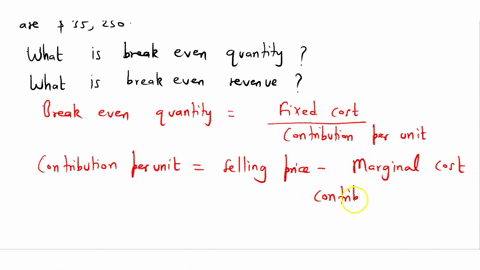 are $ 35,250.
What is break even quantity ?
What is break even revenue ?
Break even quantity = Fixed cost / Contribution per unit
Contribution per unit = Selling price - Marginal cost
contrib